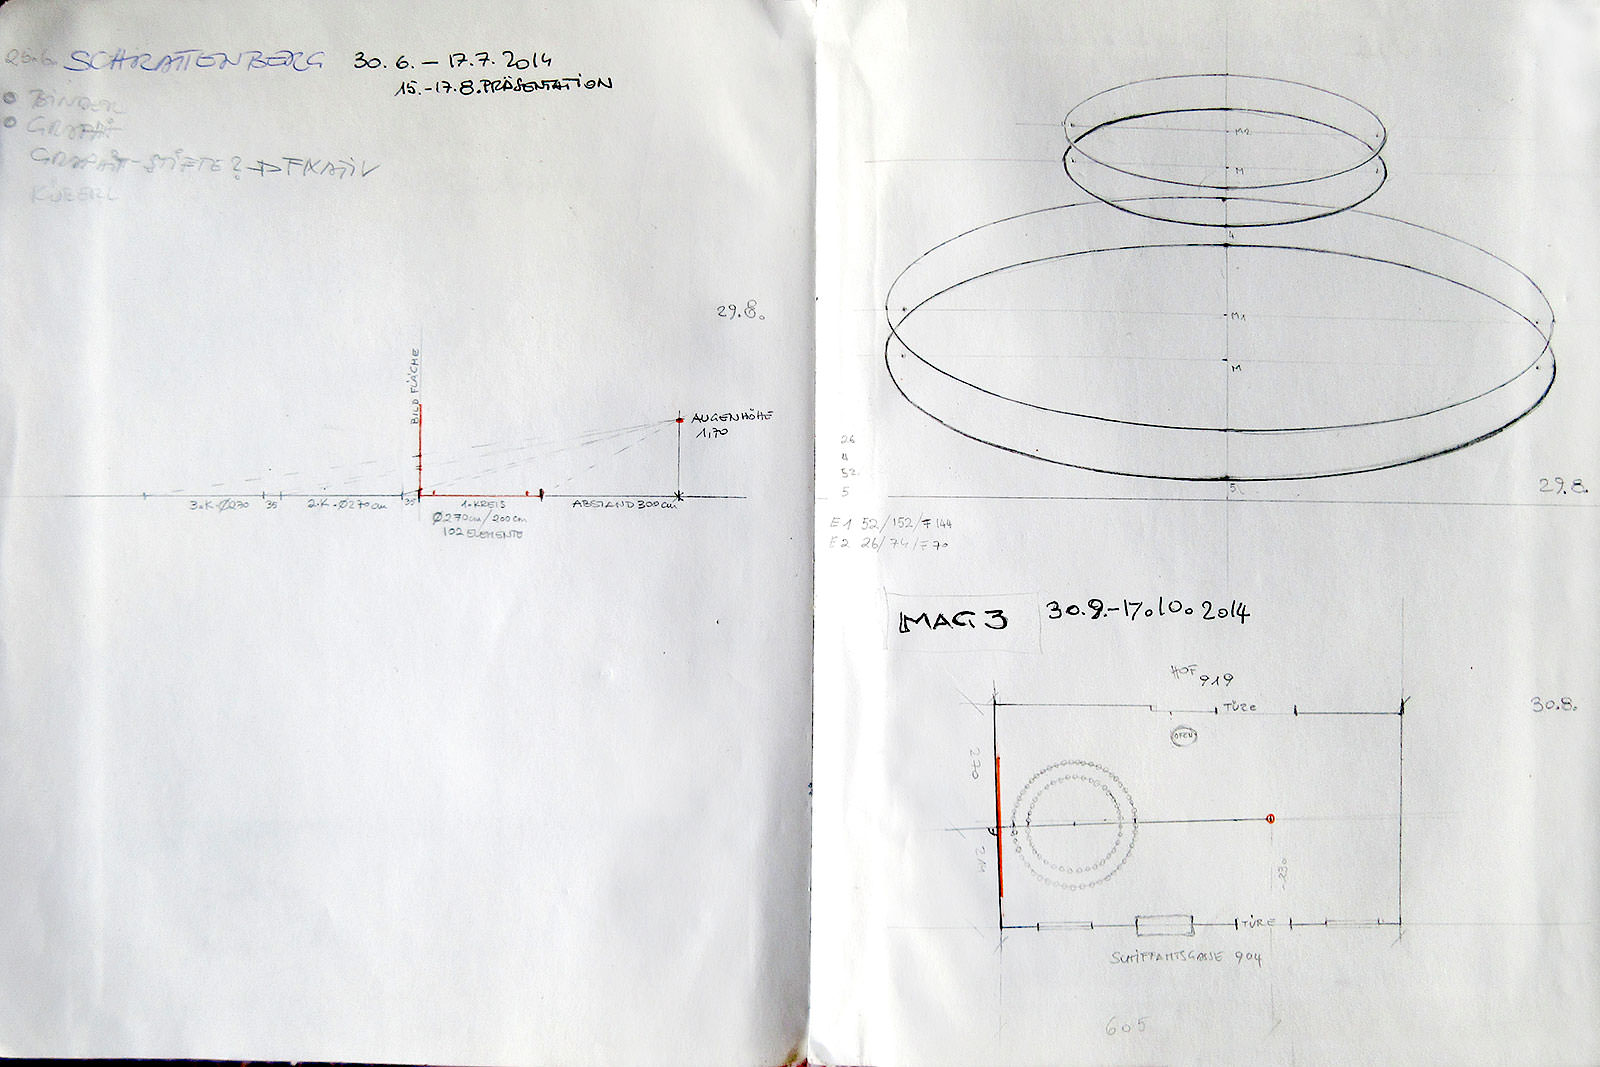 25.6. SCHRATTENBERG 30.6. – 17.7. 2014
15.-17.8. PRÄSENTATION
BINDER
GRAFIT
GRAFIT-STIFTE? → FIXATIV
KÜBERL
29.8.
BILDFLÄCHE
AUGENHÖHE
1,70
3.K.Ø270 35 2.K.Ø270cm 35 1.KREIS ABSTAND 300cm
Ø270cm/200cm
102 ELEMENTE
M2
M
4
M1
M
26
4
52
5
5
29.8.
E1 52/152/F144
E2 26/74/F70
MAG 3 30.9.-17.10.2014
HOF 919
TÜRE
30.8.
OFEN
270
214
-230
TÜRE
SCHIFFAMTSGASSE 904
605